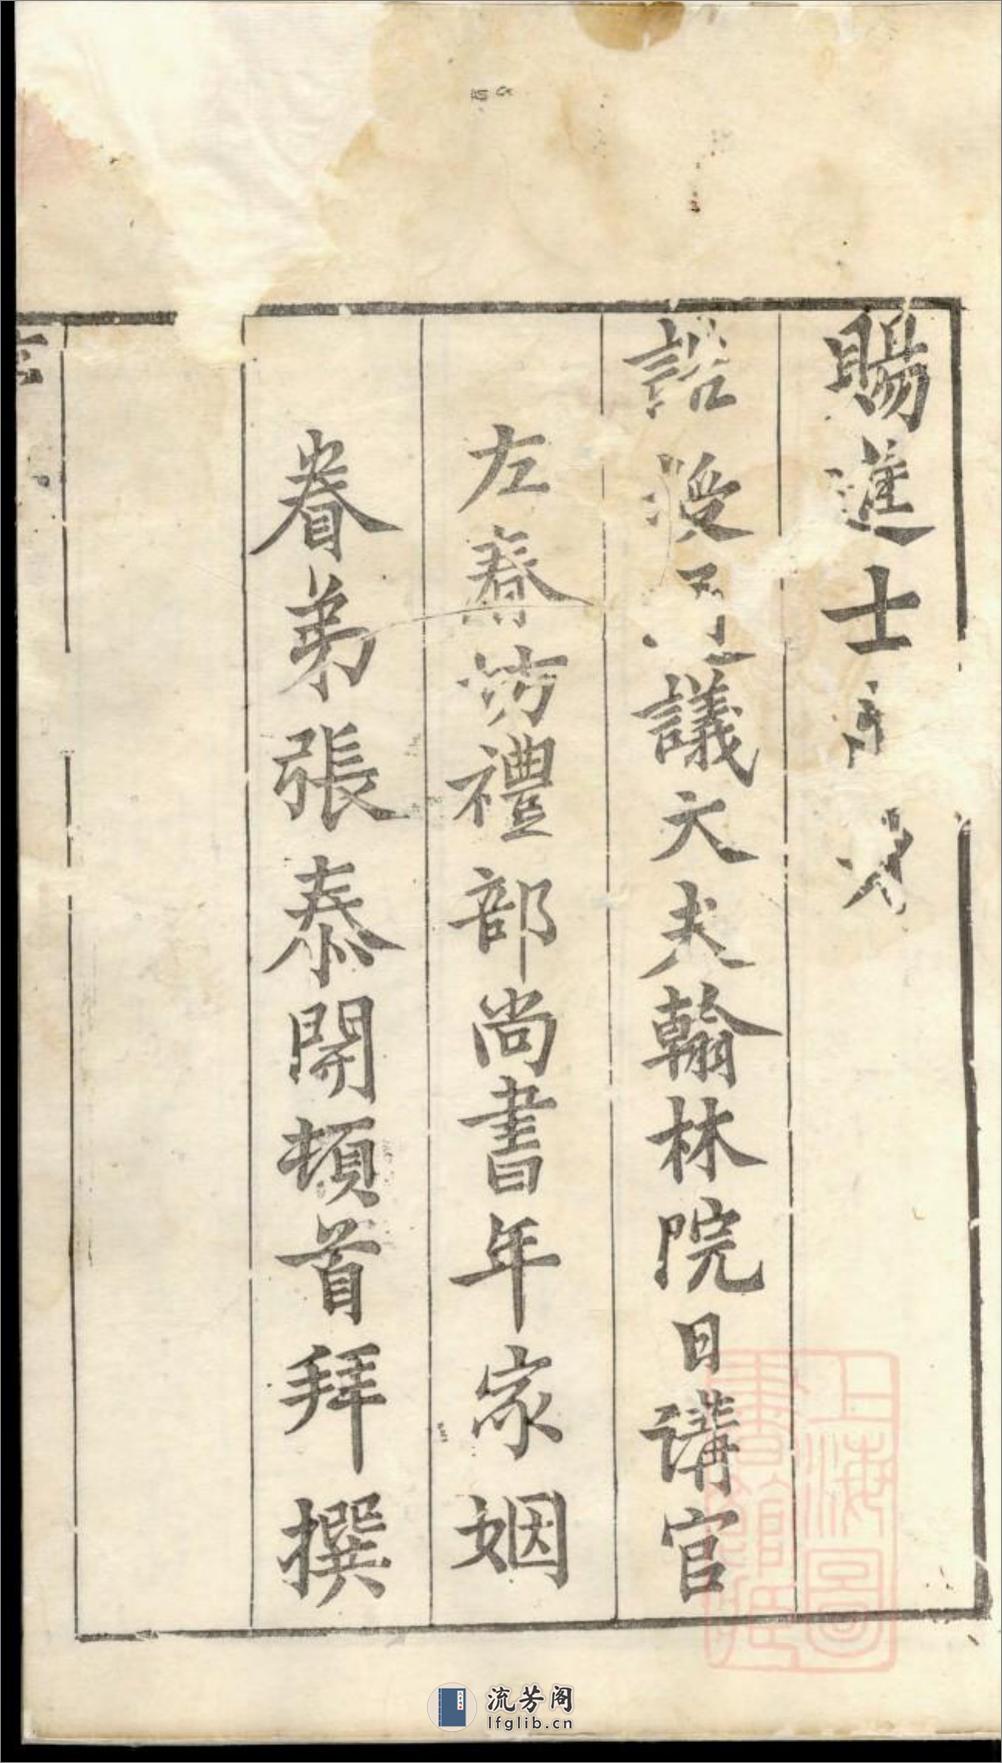 賜進士
誥授通議大夫翰林院日講官
左春坊禮部尚書年家姻
眷弟張泰開頓首拜撰
上海圖
書館藏
流芳阁
lfglib.cn